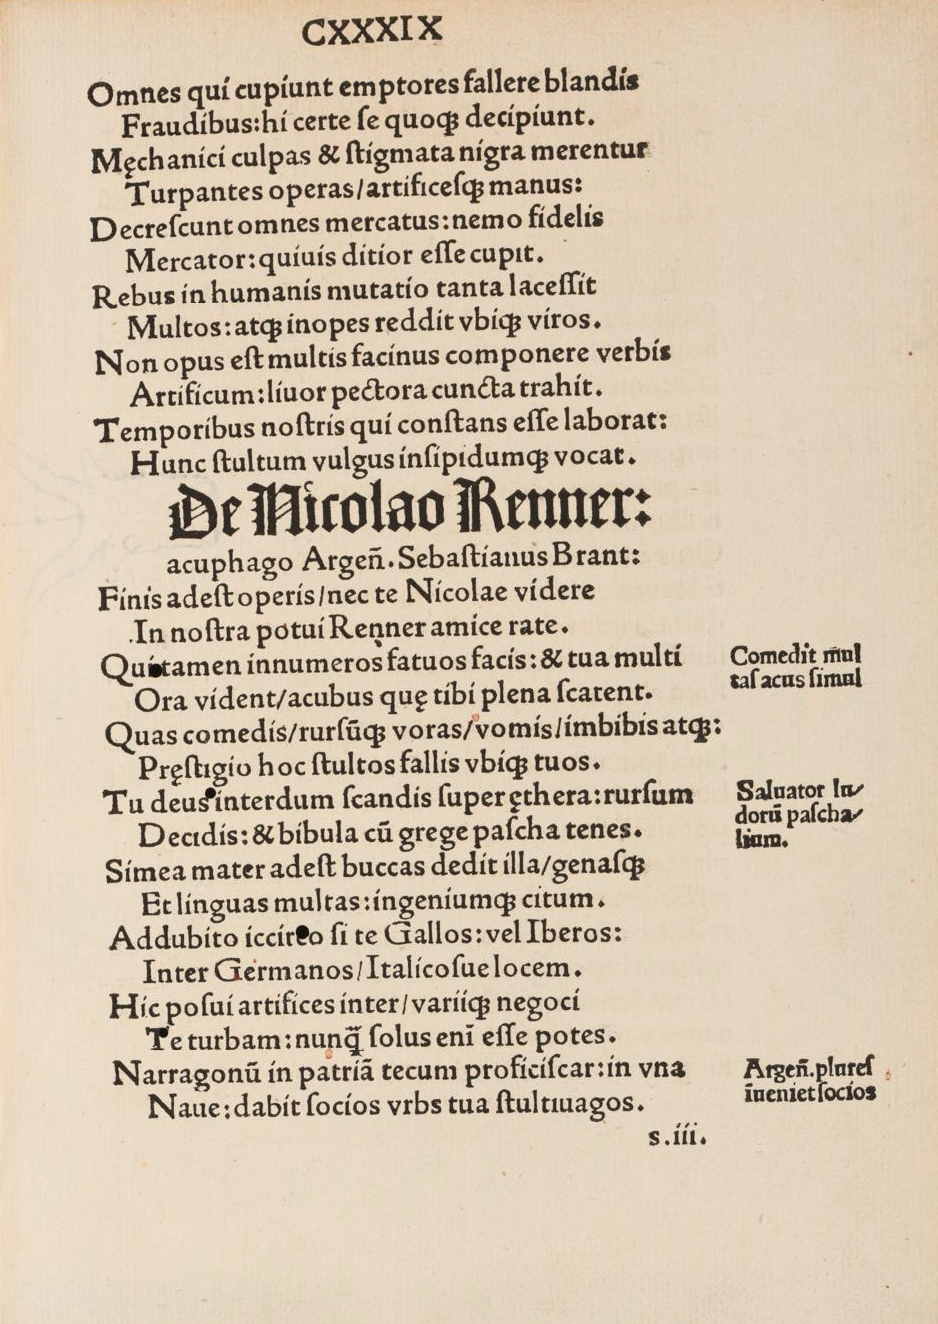 CXXXIX
Omnes qui cupiunt emptores fallere blandis
Fraudibus:hi certe ſe quoqꝫ decipiunt.
Męchanici culpas & ſtigmata nigra merentur
Turpantes operas/artificeſqꝫ manus:
Decreſcunt omnes mercatus:nemo fidelis
Mercator:quiuis ditior eſſe cupit.
Rebus in humanis mutatio tanta laceſſit
Multos:atqꝫ inopes reddit vbiqꝫ viros.
Non opus eſt multis facinus componere verbis
Artificum:liuor pectora cuncta trahit.
Temporibus noſtris qui conſtans eſſe laborat:
Hunc ſtultum vulgus inſipidumqꝫ vocat.
De Nicolao Renner:
acuphago Argen̄.Sebaſtianus Brant:
Finis adeſt operis/nec te Nicolae videre
In noſtra potui Renner amice rate.
Qui tamen innumeros fatuos facis:& tua multi
Ora vident/acubus quę tibi plena ſcatent.
Quas comedis/rurſūqꝫ voras/vomis/imbibis atqꝫ:
Pręſtigio hoc ſtultos fallis vbiqꝫ tuos.
Tu deus interdum ſcandis ſuper ęthera:rurſum
Decidis:& bibula cū grege paſcha tenes.
Simea mater adeſt buccas dedit illa/genaſqꝫ
Et linguas multas:ingeniumqꝫ citum.
Addubito iccirco ſi te Gallos:vel Iberos:
Inter Germanos/Italicoſue locem.
Hic poſui artifices inter/variiqꝫ negoci
Te turbam:nunq̄ ſolus eni eſſe potes.
Narragonū in patriā tecum proficiſcar:in vna
Naue:dabit ſocios vrbs tua ſtultiuagos.
s.iii.
Comedit m̄ul
taſ acus ſimul
Saluator lu
dorū paſcha
lium.
Argen̄.plureſ
īueniet ſocios